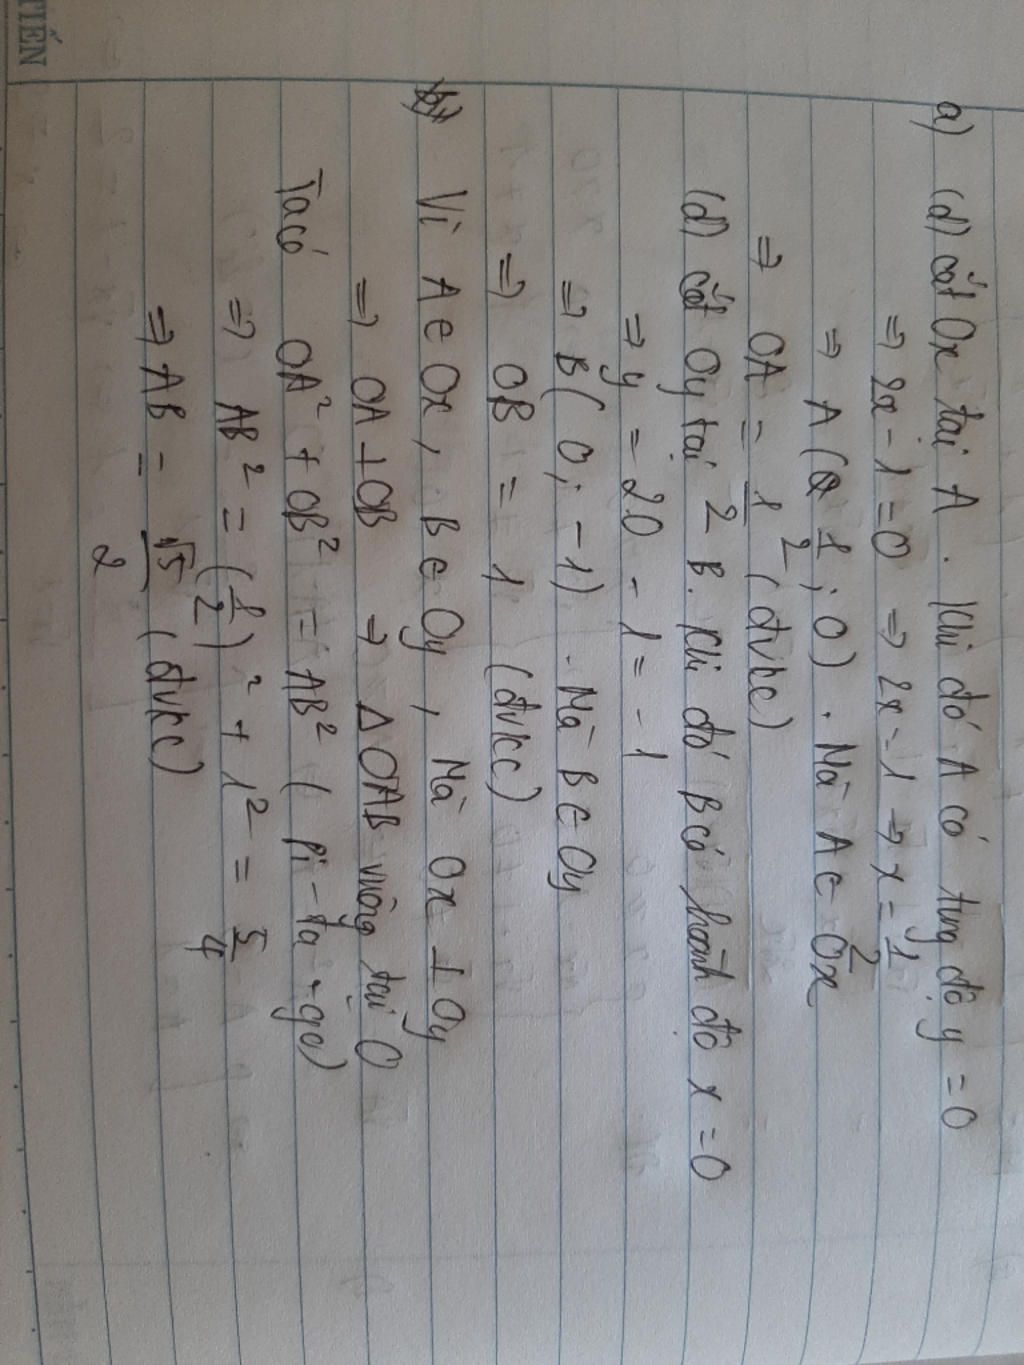 TIẾN
a) (d) cắt Ox tại A. Khi đó A có tung độ y = 0
⇒ 2x - 1 = 0 ⇒ 2x = 1 ⇒ x = 1/2
⇒ A (1/2; 0). Mà A ∈ Ox
⇒ OA = 1/2 (đvkc)
(d) cắt Oy tại B. Khi đó B có hoành độ x = 0
⇒ y = 2.0 - 1 = -1
⇒ B (0; -1). Mà B ∈ Oy
⇒ OB = 1 (đvkc)
b) Vì A ∈ Ox, B ∈ Oy, Mà Ox ⊥ Oy
⇒ OA ⊥ OB ⇒ Δ OAB vuông tại O
Ta có OA² + OB² = AB² (Pi-ta-go)
⇒ AB² = (1/2)² + 1² = 5/4
⇒ AB = √5/2 (đvkc)